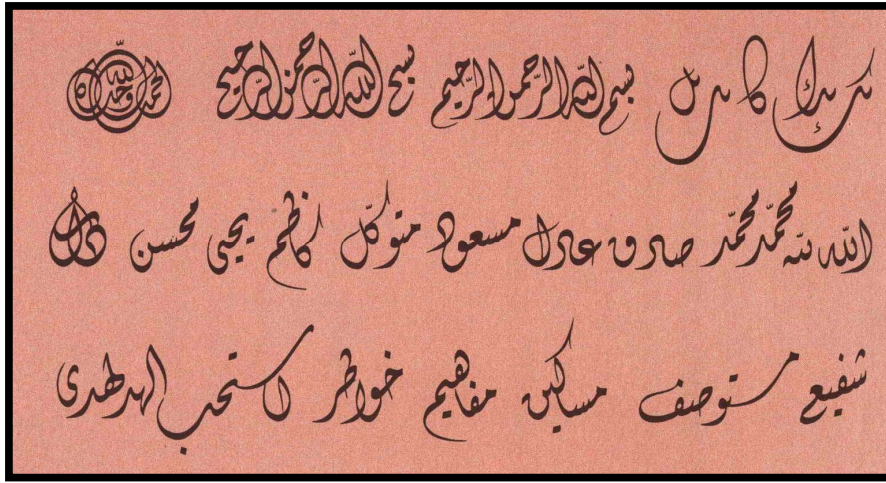 بسم الله الرحمن الرحيم بسم الله الرحمن الرحيم الحمد لله وحده
الله لله محمّد محمّد صادق عادل مسعود متوكّل كاظم يحيى محسن
شفيع مستوصف مساكين مفاهيم خواطر استحب الهدهدى